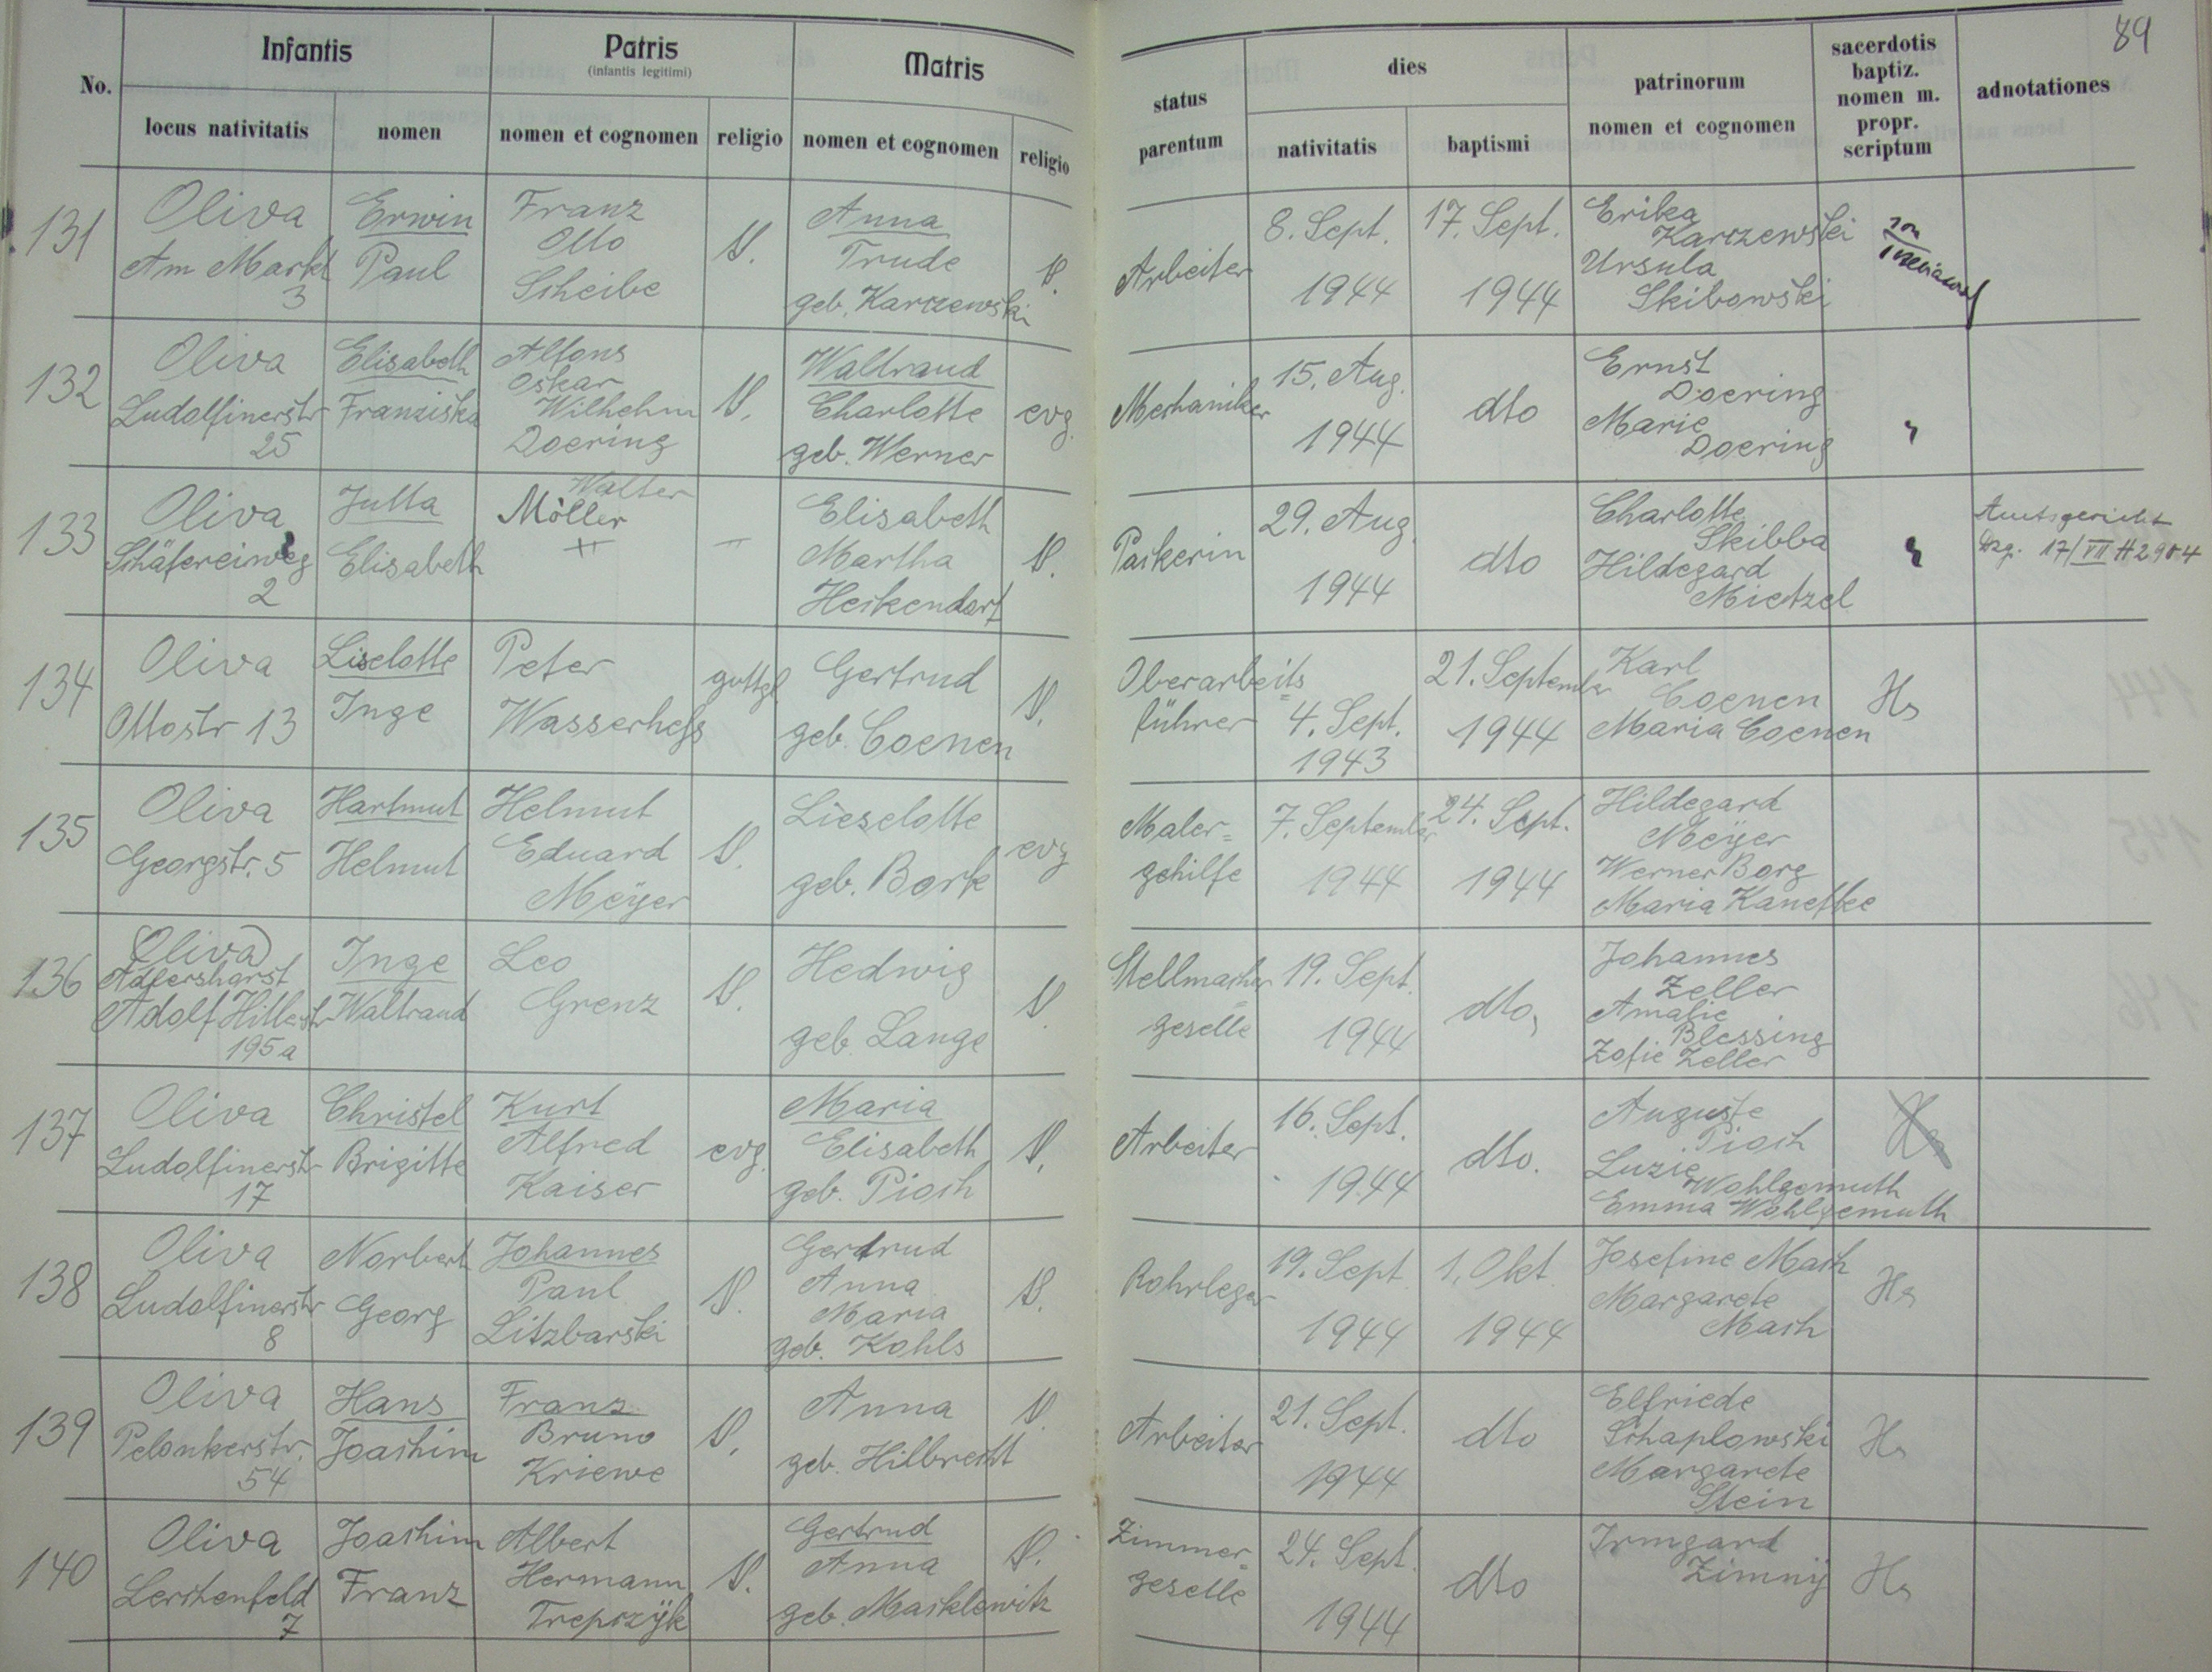 89
No.
Infantis
locus nativitatis
nomen
Patris
(infantis legitimi)
nomen et cognomen
religio
Matris
nomen et cognomen
religio
status
parentum
dies
nativitatis
baptismi
patrinorum
nomen et cognomen
sacerdotis
baptiz.
nomen m.
propr.
scriptum
adnotationes
131
Oliva
Am Markt
3
Erwin
Paul
Franz
Otto
Scheibe
Anna
Trude
geb. Karczewski
Arbeiter
8. Sept.
1944
17. Sept.
1944
Erika
Karczewski
Ursula
Skibowski
132
Oliva
Ludolfinerstr
25
Elisabeth
Franziska
Alfons
Oskar
Wilhelm
Doering
Waltraud
Charlotte
geb. Werner
evg.
Mechaniker
15. Aug.
1944
dto
Ernst
Doering
Marie
Doering
133
Oliva
Schäfereiweg
2
Jutta
Elisabeth
Walter
Möller
Elisabeth
Martha
Heckendorf
Packerin
29. Aug.
1944
dto
Charlotte
Skibba
Hildegard
Mietzel
Amtsgericht
17/VII H 2904
134
Oliva
Ottostr 13
Liselotte
Inge
Peter
Wasserhess
gottgl.
Gertrud
geb. Coenen
Oberarbeits=
führer
4. Sept.
1943
21. September
1944
Karl
Coenen
Maria Coenen
Hs
135
Oliva
Georgstr. 5
Hartmut
Helmut
Helmut
Eduard
Meÿer
Lieselotte
geb. Bork
evg
Maler=
gehilfe
7. September
1944
24. Sept.
1944
Hildegard
Meÿer
Werner Borg
Maria Kaneftke
136
(Oliva)
Adlershorst
Adolf Hitlerstr
195a
Inge
Waltraud
Leo
Grenz
Hedwig
geb. Lange
Stellmacher=
geselle
19. Sept.
1944
dto,
Johannes
Zeller
Amalie
Blessing
Zofie Zeller
137
Oliva
Ludolfinerstr
17
Christel
Brigitte
Kurt
Alfred
Kaiser
evg.
Maria
Elisabeth
geb. Pioch
Arbeiter
16. Sept.
1944
dto.
Auguste
Pioch
Luzie
Wohlgemuth
Emma Wohlgemuth
Hs
138
Oliva
Ludolfinerstr
8
Norbert
Georg
Johannes
Paul
Litzbarski
Gertrud
Anna
Maria
geb. Kohls
Rohrleger
19. Sept.
1944
1. Okt.
1944
Josefine Mach
Margarete
Mach
Hs
139
Oliva
Pelonkerstr.
54
Hans
Joachim
Franz
Bruno
Kriewe
Anna
geb. Hilbrecht
Arbeiter
21. Sept.
1944
dto
Elfriede
Schaplowski
Margarete
Stein
Hs
140
Oliva
Lerchenfeld
7
Joachim
Franz
Albert
Hermann
Trepczÿk
Gertrud
Anna
geb. Macklewitz
Zimmer=
geselle
24. Sept.
1944
dto
Irmgard
Zimnÿ
Hs